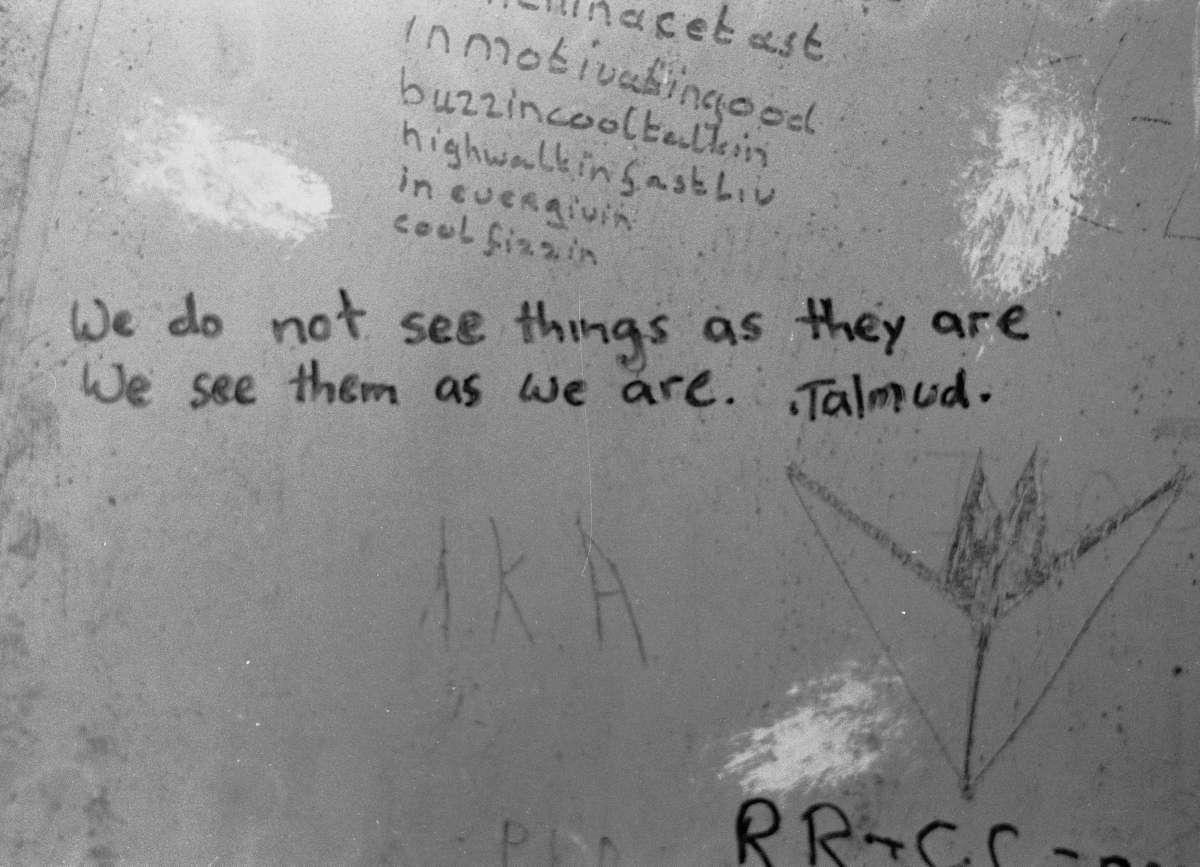 acetast
inmotivatingood
buzzincooltalkin
highwalkinfastliv
in evergivin
coolfizzin
We do not see things as they are
We see them as we are. .Talmud.
IKA